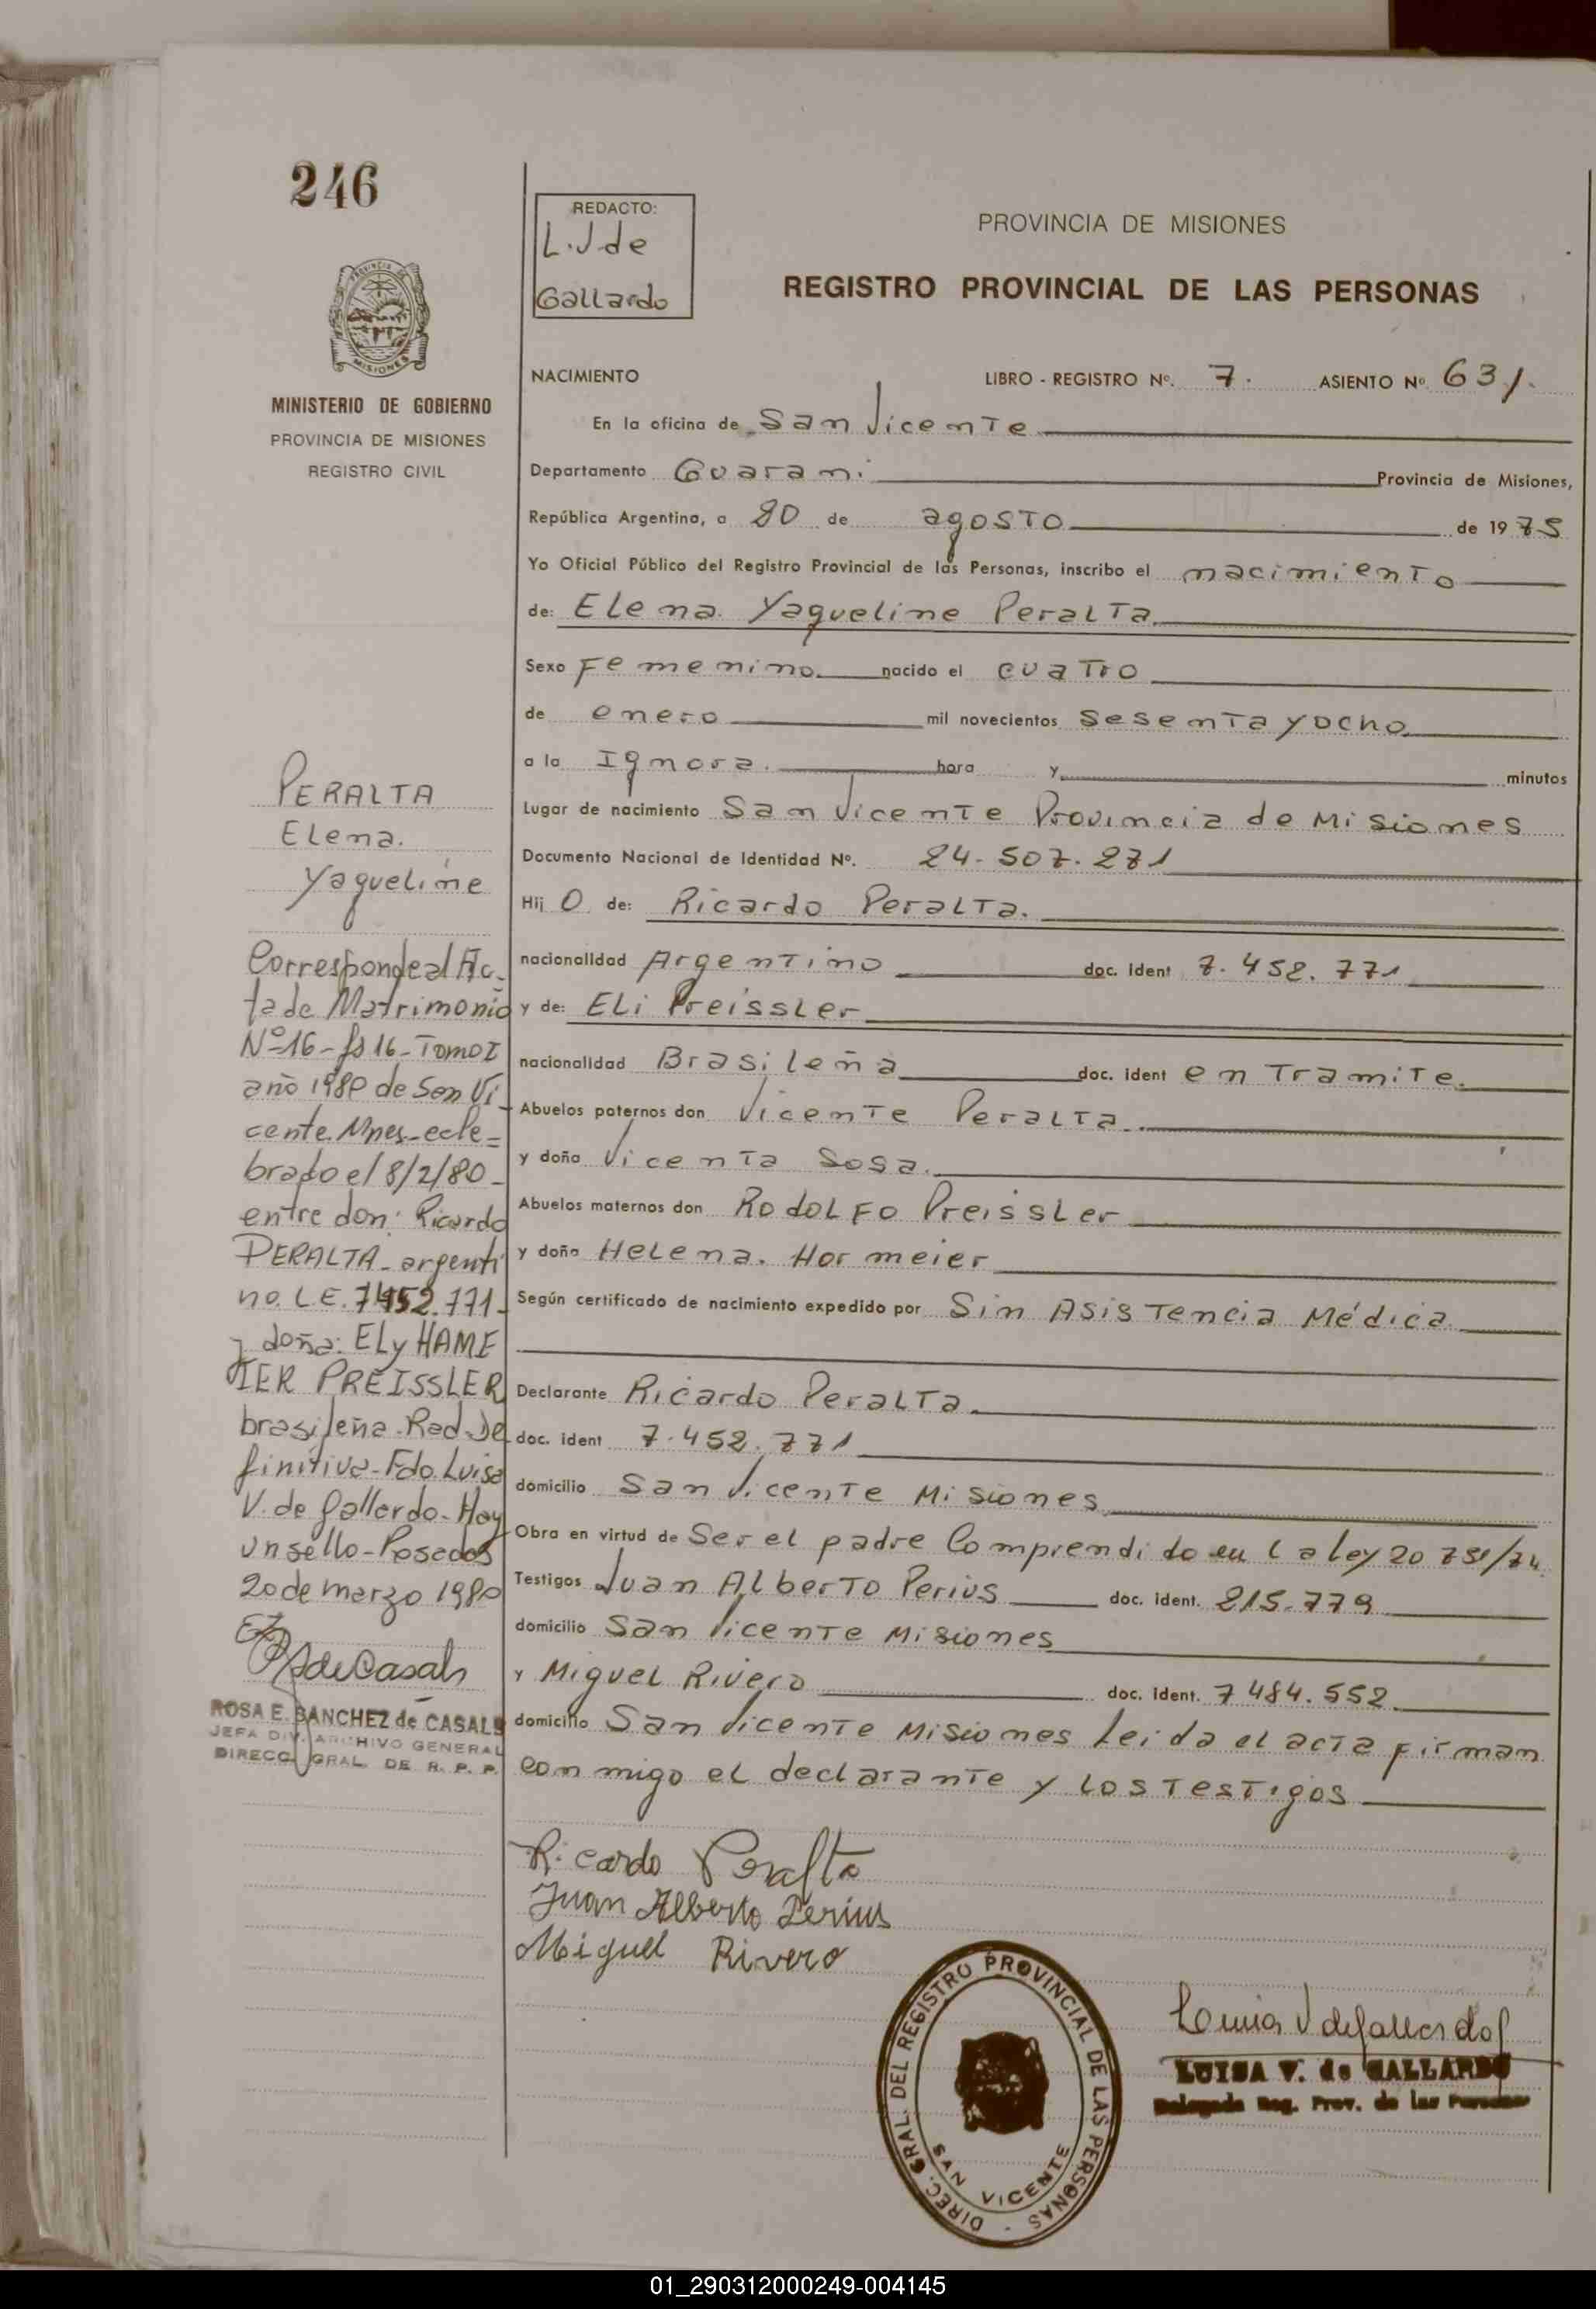 246
REDACTO:
L. V de
Gallardo
PROVINCIA DE MISIONES
REGISTRO PROVINCIAL DE LAS PERSONAS
PROVINCIA DE
MISIONES
MINISTERIO DE GOBIERNO
PROVINCIA DE MISIONES
REGISTRO CIVIL
NACIMIENTO LIBRO - REGISTRO Nº. 7. ASIENTO Nº. 631.
En la oficina de San Vicente
Departamento Guarani Provincia de Misiones,
República Argentina, a 20 de agosto de 1975
Yo Oficial Público del Registro Provincial de las Personas, inscribo el nacimiento
de: Elena Yaqueline Peralta
Sexo Femenino nacido el cuatro
de enero mil novecientos sesenta y ocho
a la Ignora. hora y minutos
Lugar de nacimiento San Vicente Provincia de Misiones
Documento Nacional de Identidad Nº. 24.507.271
Hij o de: Ricardo Peralta.
nacionalidad Argentino doc. ident 7.452.771
y de: Eli Preissler
nacionalidad Brasileña doc. ident en Tramite.
Abuelos paternos don Vicente Peralta
y doña Vicenta Sosa.
Abuelos maternos don Rodolfo Preissler
y doña Helena. Hormeier
Según certificado de nacimiento expedido por Sin Asistencia Médica
Declarante Ricardo Peralta
doc. ident 7.452.771
domicilio San Vicente Misiones
Obra en virtud de Ser el padre Comprendido en la ley 20 751/74
Testigos Juan Alberto Perius doc. ident. 215.779
domicilio San Vicente Misiones
y Miguel Rivero doc. ident. 7484.552
domicilio San Vicente Misiones Leida el acta firman
conmigo el declarante y los testigos
Ricardo Peralta
Juan Alberto Perius
Miguel Rivero
PERALTA
Elena.
Yaqueline
Corresponde al Ac-
ta de Matrimonio
Nº 16 - fs 16 - Tomo I
año 1980 de San Vi-
cente Mnes - cele=
brado el 8/2/80 -
entre don: Ricardo
PERALTA - argenti
no. L.E. 7452.771 -
y doña: ELy HAME
IER PREISSLER
brasileña - Rad. De
finitiva - Fdo. Luisa
V. de Gallardo - Hay
un sello - Posadas
20 de marzo 1980
ROSA E. SANCHEZ de CASALS
JEFA DIV. ARCHIVO GENERAL
DIRECC. GRAL. DE R. P. P.
DIREC. GRAL. DEL REGISTRO PROVINCIAL DE LAS PERSONAS -
SAN VICENTE
Luisa V de Gallardo
LUISA V. de GALLARDO
Delegada Reg. Prov. de las Personas
01_290312000249-004145